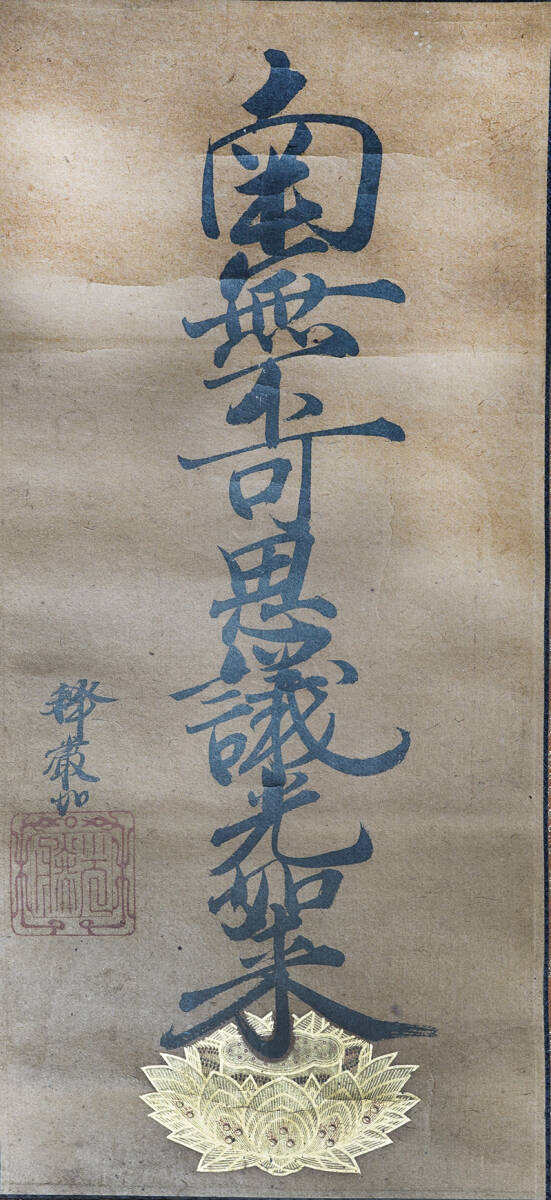 南無不可思議光如来
釋嚴如